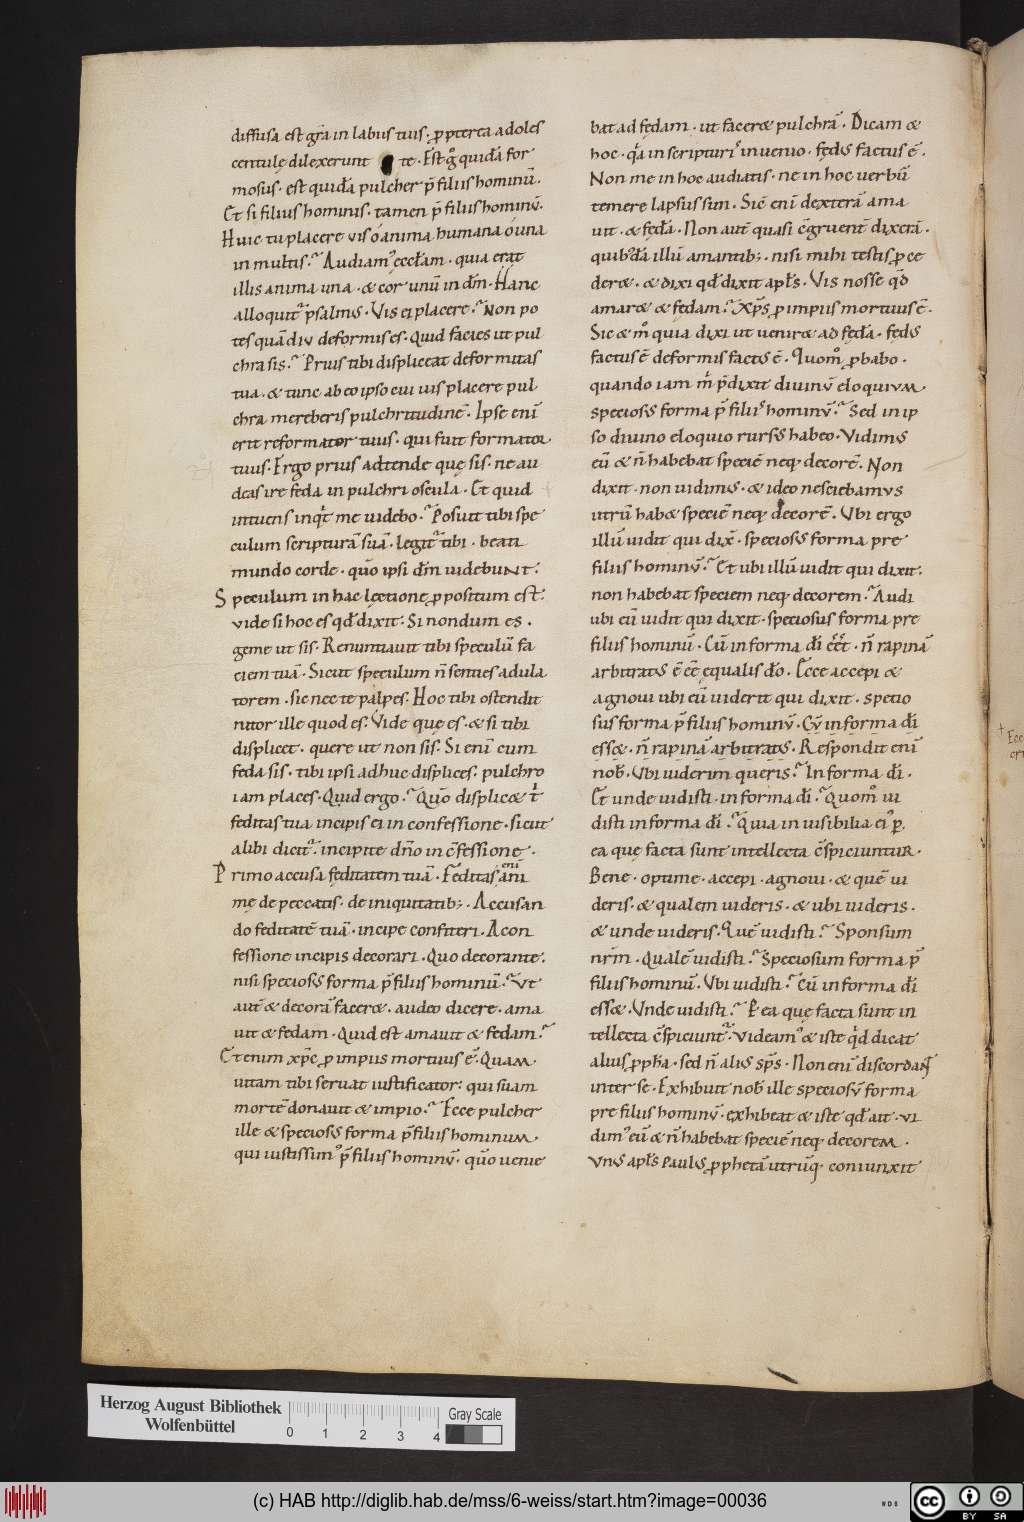 diffusa est gr̄a in labiis tuis · ꝓpterea adoles
centulę dilexerunt te · Est g̊ quidā for
mosus · est quidā pulcher p̄ filiis hominū ·
Et si filius hominis · tamen p̄ filiis hominū ·
Huic tu placere vis ó anima humana ó una
in multis ? Audiam᾿ ęccłam · quia erat
illis anima una · & cor unū in dm̄ · Hanc
alloquit᷑ psalmus · Vis ei placere ? Non po
tes quādiu deformis es · Quid facies ut pul
chra sis ? Prius tibi displiceat deformitas
tua · & tunc ab eo ipso cui uis placere pul
chra mereberis pulchritudinē · Ipse enī
erit reformator tuus · qui fuit formator
tuus · Ergo prius adtende quę sis · ne au
deas ire feda in pulchri oscula · Et quid
intuens inq̇t me uidebo ? Posuit tibi spe
culum scripturā suā · legit᷑ tibi · beati
mundo corde · quō ipsi dm̄ uidebunt ·
Speculum in hac lectione ꝓpositum est ·
vide si hoc es qđ dixit · Si nondum es ·
geme ut sis · Renuntiauit tibi speculū fa
ciem tuā · Sicut speculum n̄ senties adula
torem · sic nec te palpes · Hoc tibi ostendit
nitor ille quod es · Vide quę es · & si tibi
displicet · quere ut non sis · Si enī cum
feda sis · tibi ipsi adhuc displices · pulchro
iam places · Quid ergo ? Quō displic& t̓
feditas tua incipis ei in confessione · sicut
alibi dicit᷑ · incipite dn̄o in c̄fessione ·
Primo accusa fęditatem tuā · Feditas enī ani
mę de peccatis · de iniquitatib; · Accusan
do feditatē tuā · incipe confiteri · A con
fessione incipis decorari · Quo decorante ·
nisi speciosꝰ forma p̄ filiis hominū ? Vt
autē & decorā facer& · audeo dicere · ama
uit & fedam · Quid est amauit & fedam ?
Etenim xp̄c ꝓ impiis mortuus ē · Quam
uitam tibi seruat iustificator · qui suam
mortē donauit & impio ? Ecce pulcher
ille & speciosꝰ forma p̄ filiis hominum ·
qui iustissim᾿ p̄ filiis hominū · quō uenie
bat ad fędam · ut facer& pulchrā · Dicam &
hoc · q̓a in scripturis inuenio · fędꝰ factus ē ·
Non me in hoc audiatis · ne in hoc uerbū
temere lapsus sim · Sic enī dexterā ama
uit · & fędā · Non autē quasi c̄gruent dixerā ·
quibꝰdā illū amantib; · nisi mihi testis ꝓce
der& · & dixi qđ dixit apłs · Vis nosse qđ
amar& & fedam ? Xp̄s ꝓ impiis mortuus ē ·
Sic & m̊ quia dixi ut uenir& ad fędā · fędꝰ
factus ē deformis factꝰ ē · Quom̊ ꝓbabo ·
quando iam m̓ p̄dixit diuinū eloquium
speciosꝰ forma p̄ filiis hominū ? Sed in ip
so diuino eloquio rursꝰ habeo · Vidimꝰ
eū & n̄ habebat speciē neq; decorē · Non
dixit · non uidimꝰ · & ideo nesciebamus
utrū hab& speciē neq; decorē · Vbi ergo
illū uidit qui dix̄ · speciosꝰ forma pre
filiis hominū ? Et ubi illū uidit qui dixit ·
non habebat speciem neq; decorem ? Audi
ubi eū uidit qui dixit · speciosus forma pre
filiis hominū · Cū in forma dī cēt · n̄ rapinā
arbitratꝰ ē cē ęqualis dō · Ecce accepi &
agnoui ubi eū uiderit qui dixit · specio
sus forma p̄ filiis hominū · Cū in forma dī
ess& · n̄ rapinā arbitratꝰ · Respondit enī
nob̄ · Vbi uiderim queris ? In forma dī ·
Et unde uidisti · in forma dī ? Quom̊ ui
disti in forma dī ? Quia inuisibilia ei᾿ ꝑ
ea quę facta sunt intellecta c̄spiciuntur ·
Bene · optime · accepi · agnoui · & quē ui
deris · & qualem uideris · & ubi uideris ·
& unde uideris · Quē uidisti ? Sponsum
nr̄m · Qualē uidisti ? Speciosum forma p̄
filiis hominū · Vbi uidisti ? Cū in forma dī
ess& · Vnde uidisti ? P ea quę facta sunt in
tellecta c̄spiciunt᷑ · Videam᾿ & iste q̓d dicat
alius ꝓpha · sed n̄ alius sp̄s · Non enī discordant
inter se · Exhibuit nob̄ ille speciosū forma
pre filiis hominū · exhibeat & iste qđ ait · vi
dim᾿ eū & n̄ habebat speciē neq; decorem ·
Vnꝰ apłs Paulꝰ ꝓphetā utrūq; coniunxit
Herzog August Bibliothek
Wolfenbüttel
0 1 2 3 4
Gray Scale
(c) HAB http://diglib.hab.de/mss/6-weiss/start.htm?image=00036
cc BY SA